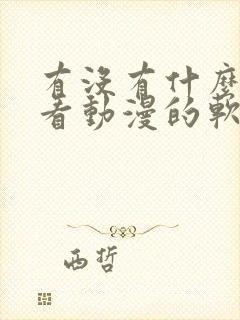 有沒有什麼
看動漫的軟
西哲